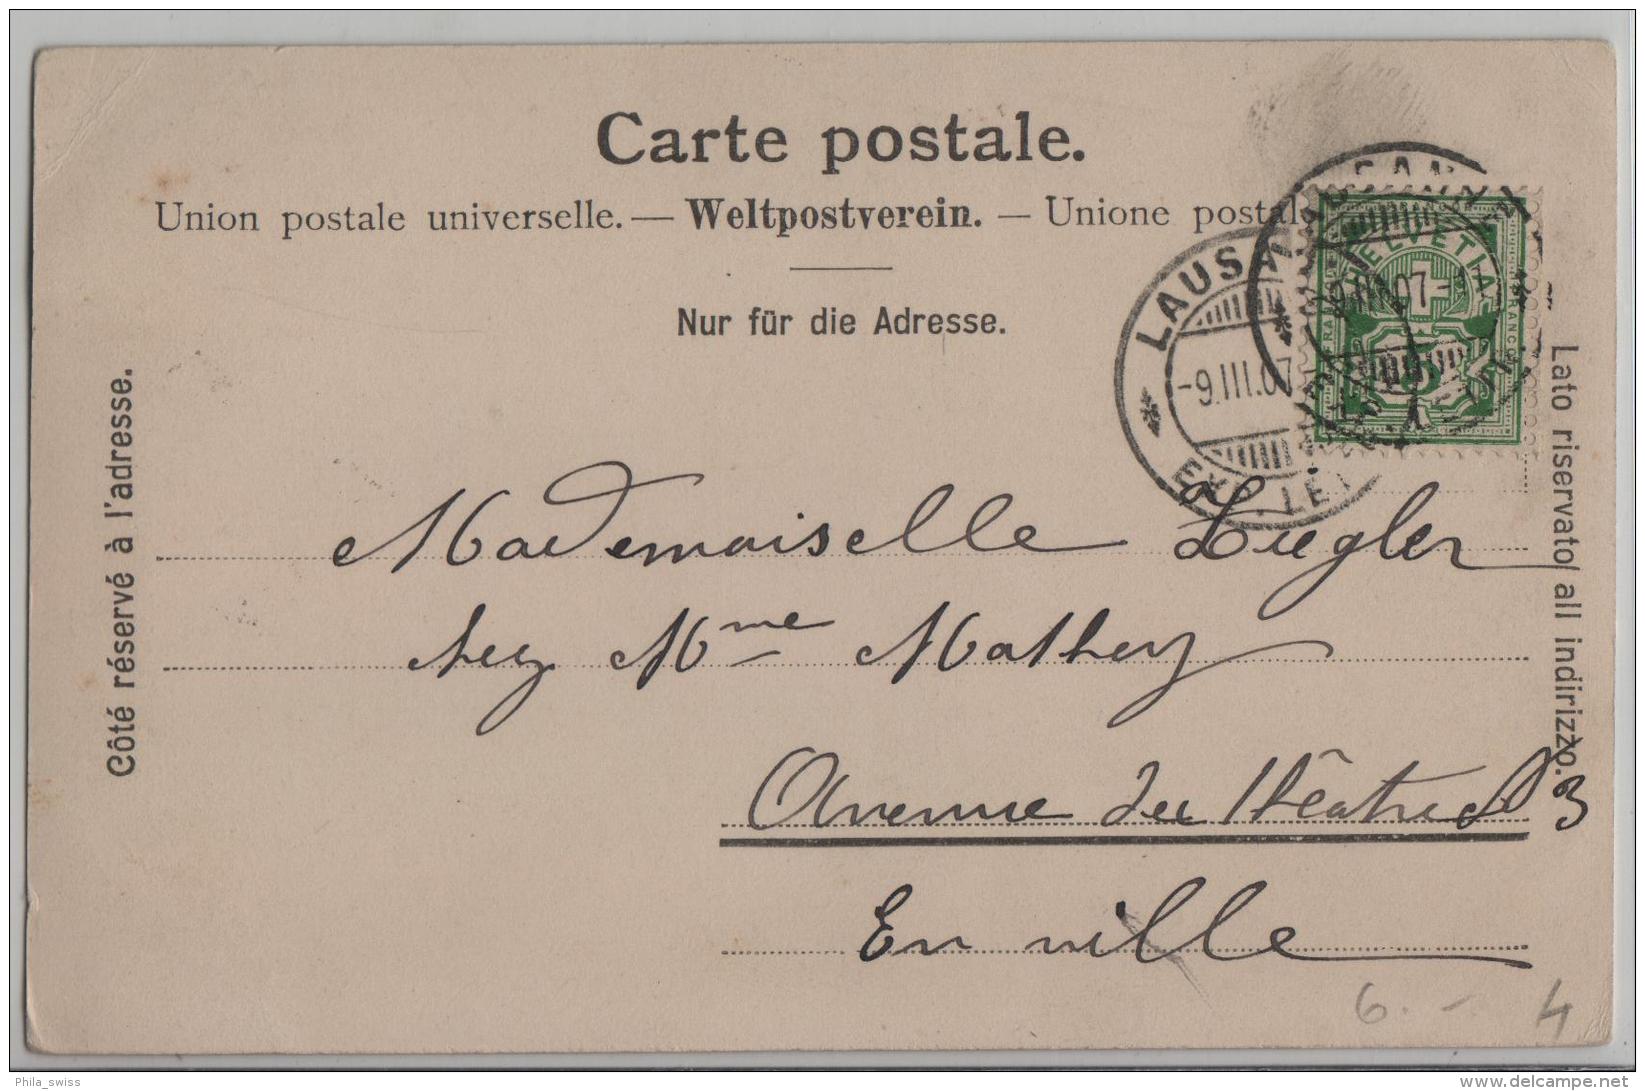 Carte postale.
Union postale universelle. — Weltpostverein. — Unione postale
Nur für die Adresse.
Côté réservé à l'adresse.
Lato riservato all indirizzo.
LAUSANNE
-9.III.07
EXP. LET.
HELVETIA
FRANCO
5
Mademoiselle Ziegler
chez Mme Mathey
Avenue du Thêatre 3
En ville
6.-
4
Phila_swiss
www.delcampe.net